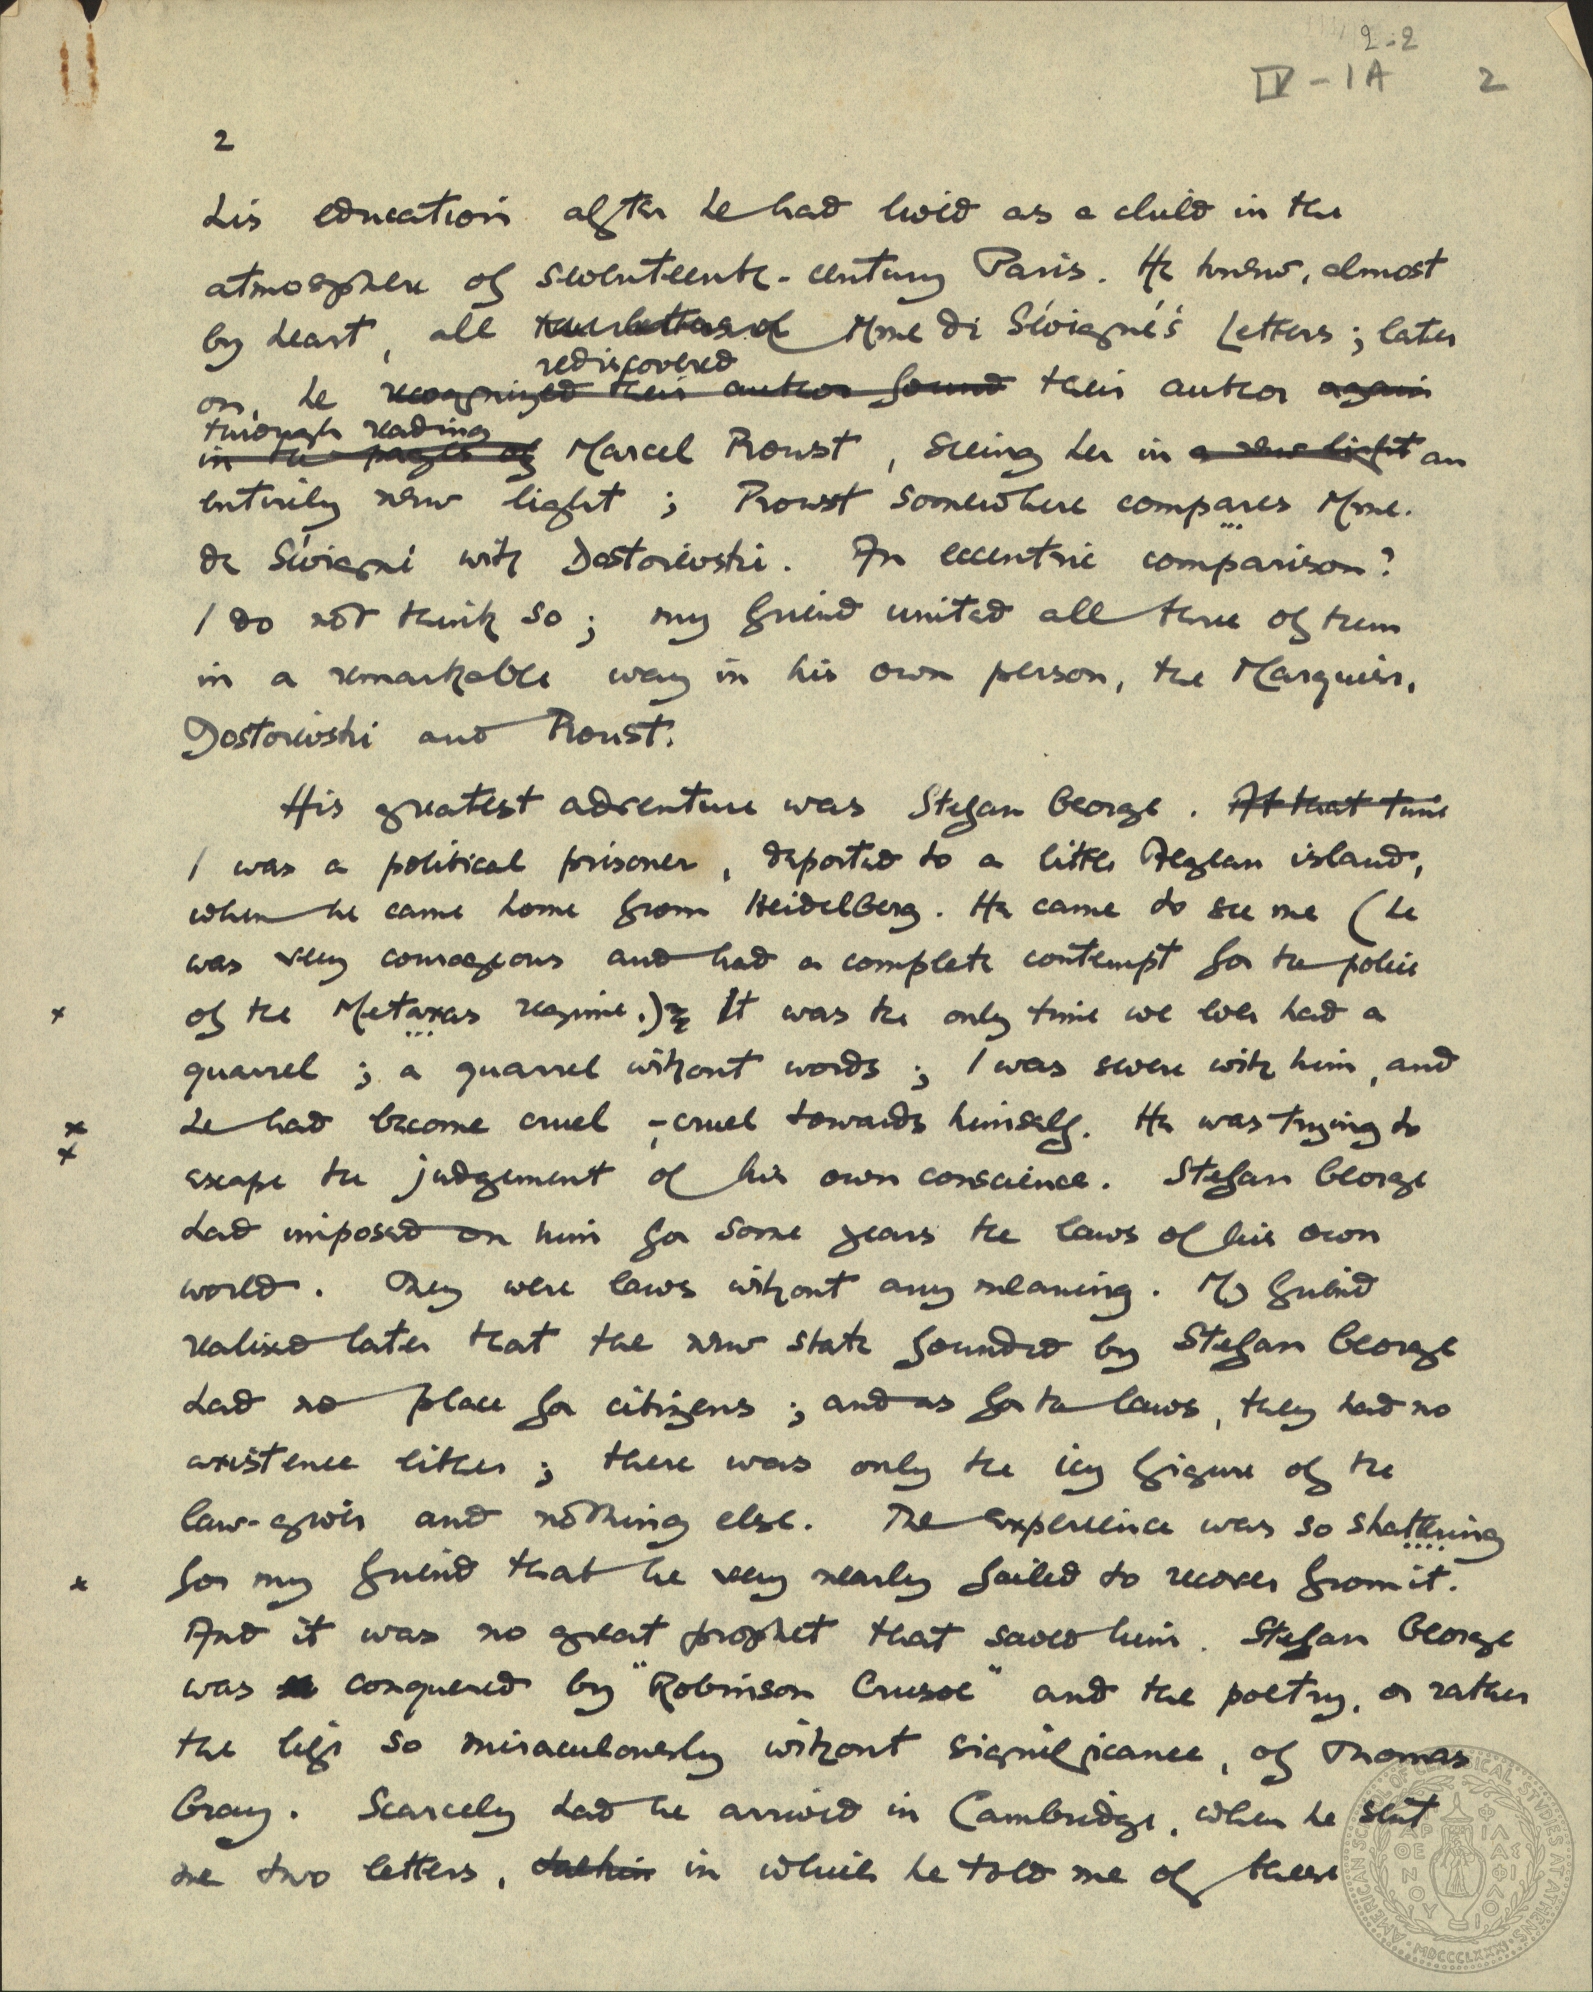 2-2
IV - 1A 2
2
his education after he had lived as a child in the
atmosphere of seventeenth-century Paris. He knew, almost
by heart, all the letters of Mme de Sévigné's Letters; later
rediscovered
on, he recognized their author found their author again
through reading
in the pages of Marcel Proust, seeing her in a new light an
entirely new light; Proust somewhere compares Mme.
de Sévigné with Dostoievski. An eccentric comparison?
I do not think so; my friend united all three of them
in a remarkable way in his own person, the Marquise,
Dostoievski and Proust.
His greatest adventure was Stefan George. At that time
I was a political prisoner, deported to a little Aegean island,
when he came home from Heidelberg. He came to see me (he
was very courageous and had a complete contempt for the police
x of the Metaxas regime.) It was the only time we ever had a
quarrel; a quarrel without words; I was severe with him, and
x he had become cruel - cruel towards himself. He was trying to
x escape the judgement of his own conscience. Stefan George
had imposed on him for some years the laws of his own
world. They were laws without any meaning. My friend
realised later that the new state founded by Stefan George
had no place for citizens; and as for the laws, they had no
existence either; there was only the icy figure of the
law-giver and nothing else. The experience was so shattering
x for my friend that he very nearly failed to recover from it.
And it was no great prophet that saved him. Stefan George
was conquered by "Robinson Crusoe" and the poetry, or rather
the life so miraculously without significance, of Thomas
Gray. Scarcely had he arrived in Cambridge, when he sent
me two letters, in which he told me of these
AMERICAN SCHOOL OF CLASSICAL STUDIES AT ATHENS
ΠΑΡΘΕΝΟΥ ΦΙΛΑΣ ΦΙΛΟΙ
MDCCCLXXXI